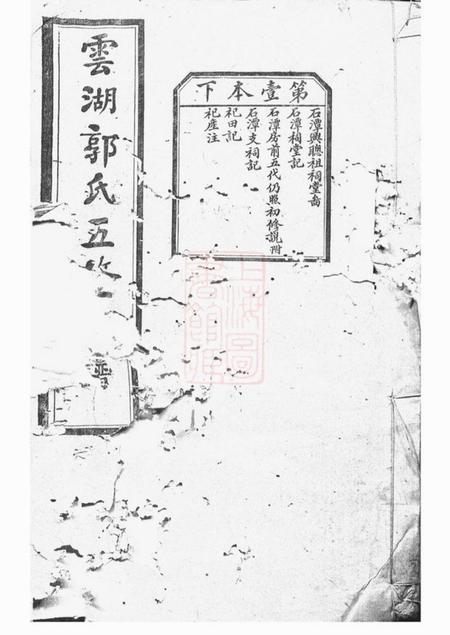 雲湖郭氏五修
譜
第壹本下
石潭興聰祖祠堂啚
石潭祠堂記
石潭房前五代仍照初修説附
石潭支祠記
祀田記
祀產注